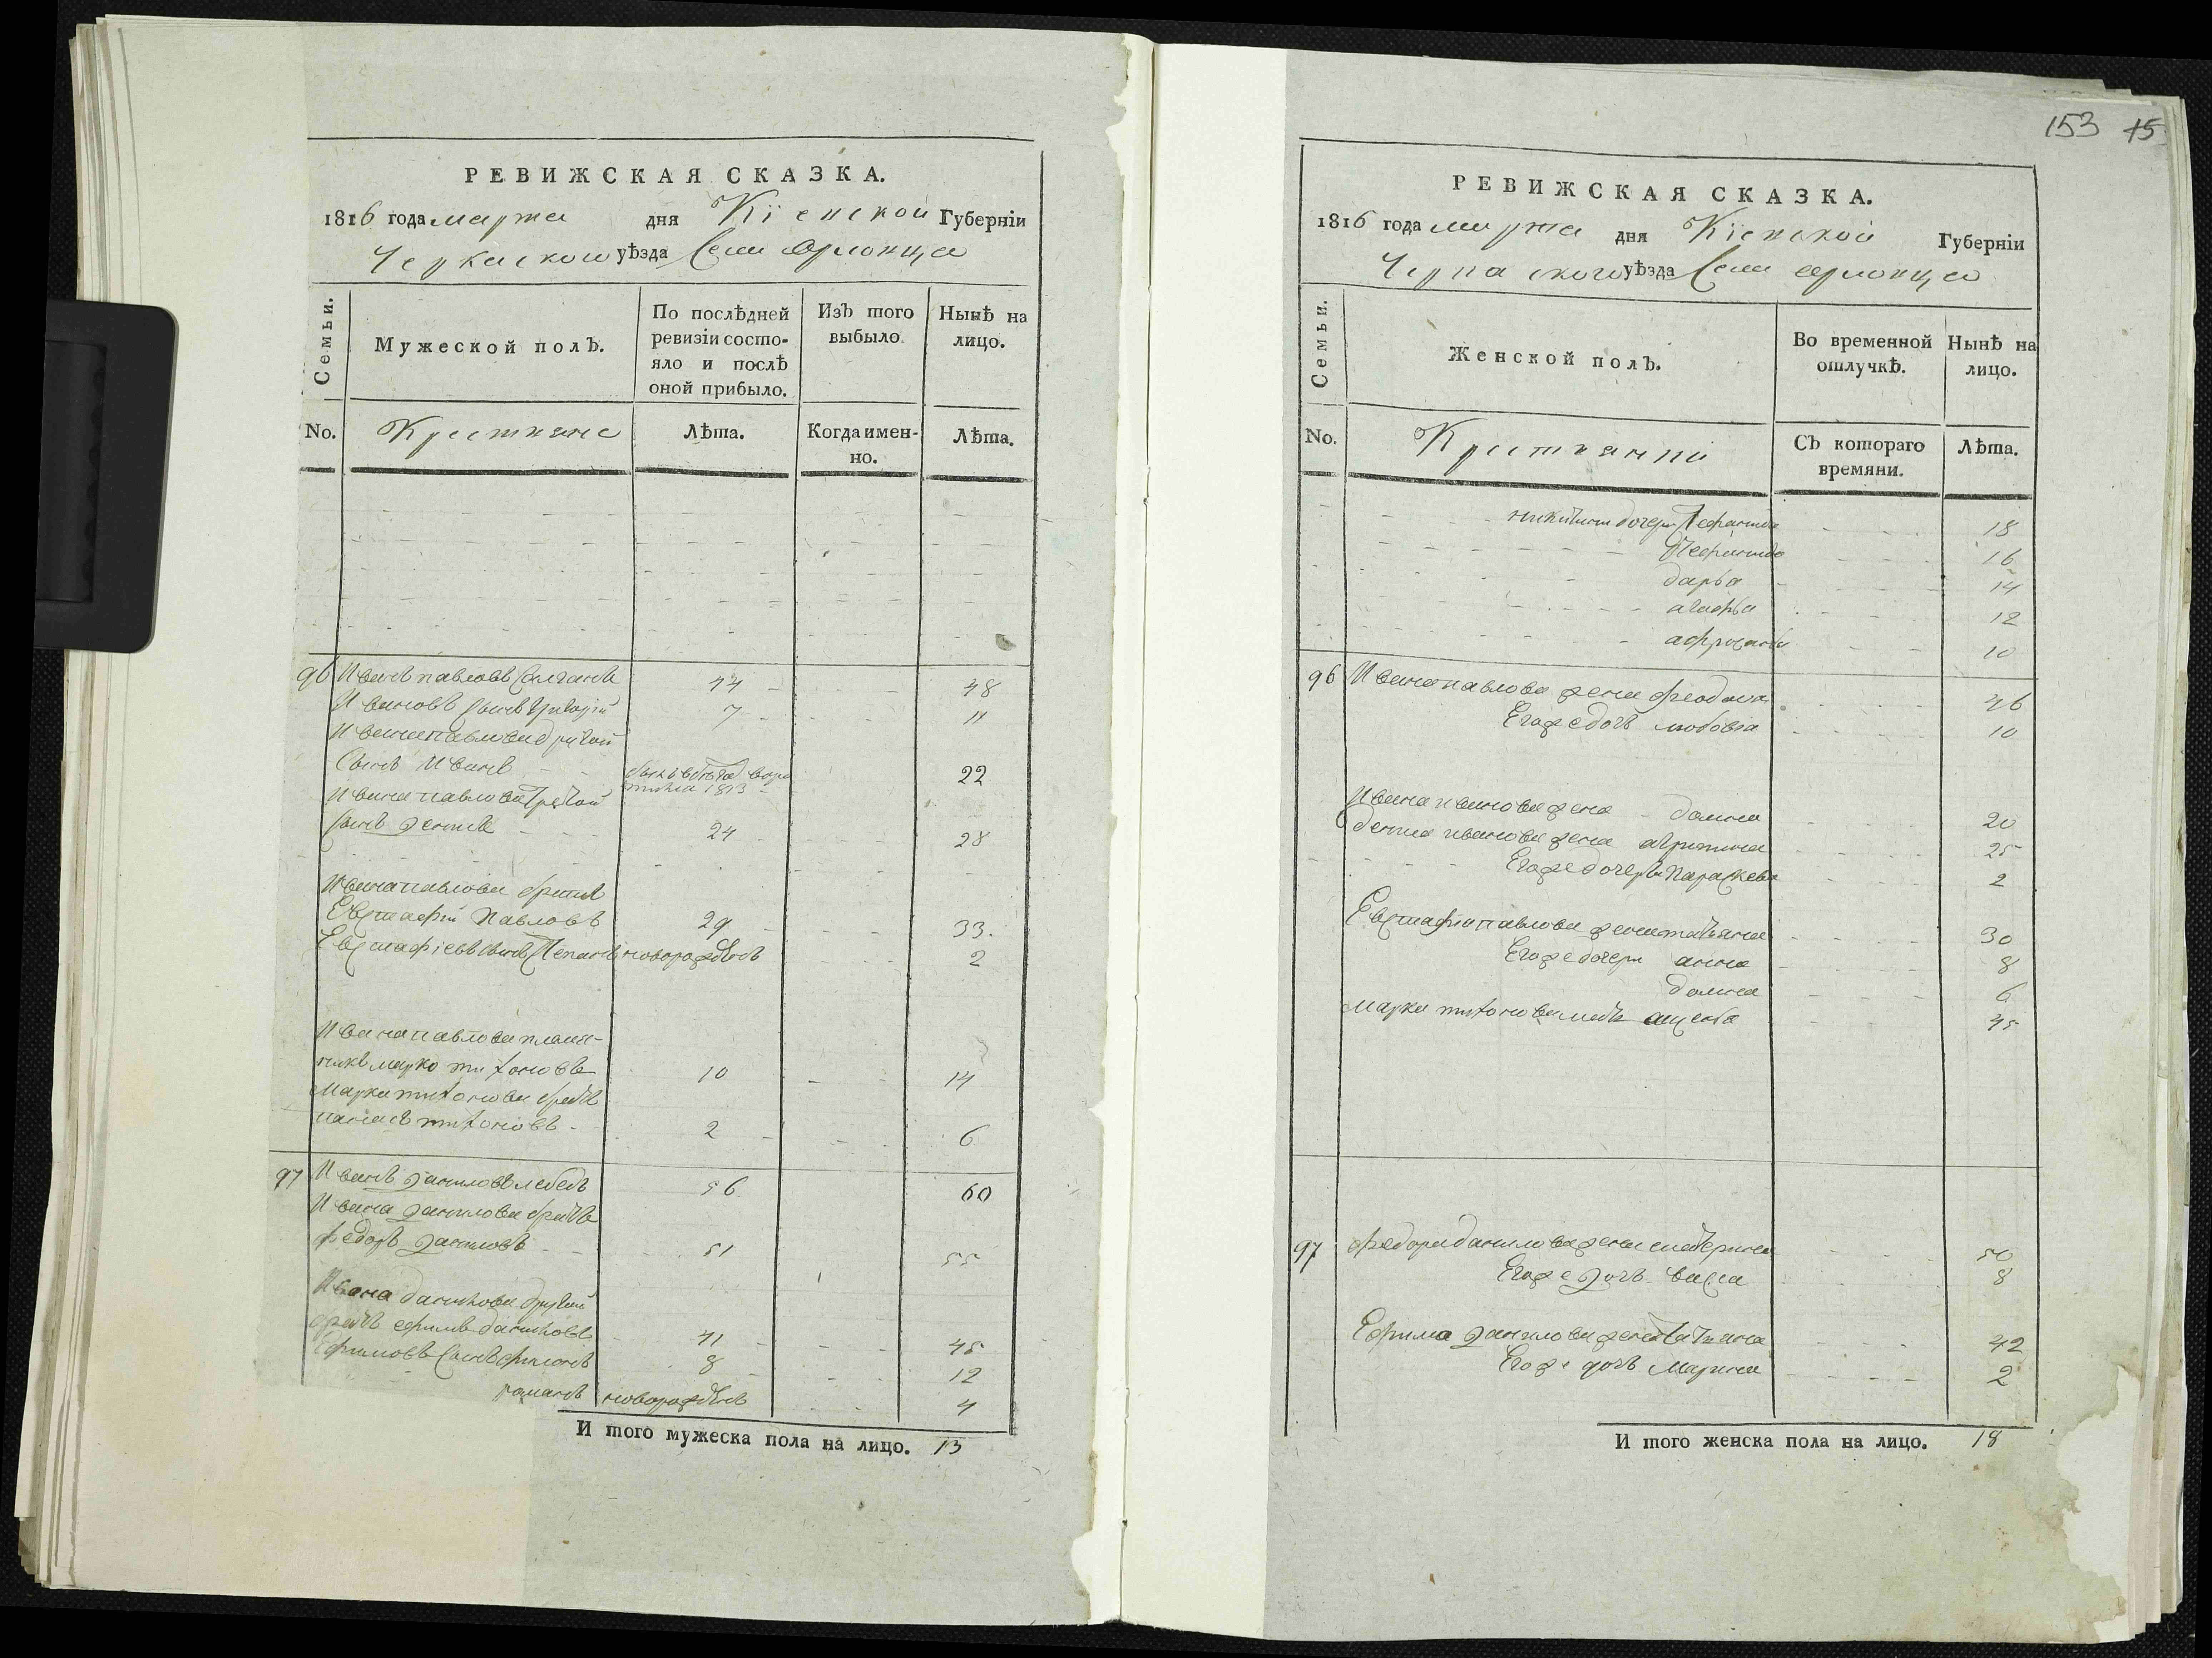 153 15
РЕВИЖСКАЯ СКАЗКА.
1816 года марта дня Кіевской Губерніи
Черкаского уѣзда Села Орловца
Семьи.
Мужеской полъ.
По послѣдней ревизіи состояло и послѣ оной прибыло.
Изъ того выбыло.
Нынѣ на лицо.
No.
Крестьяне
Лѣта.
Когда имен-
но.
Лѣта.
96 Иванъ павловъ 44 48
Ивановъ сынъ григорій 7 11
Ивана павлова другой
сынъ Иванъ 1813 22
Ивана павлова третой
сынъ денисъ 24 28
Ивана павлова братъ
Евстафій павловъ 29 33.
Евстафіевъ сынъ Степанъ новорожденъ 2
Ивана павлова племя-
никъ марко тихоновъ 10 14
Марка тихонова братъ
панасъ тихоновъ 2 6
97 Иванъ даниловъ лебедь 56 60
Ивана данилова братъ
федоръ даниловъ 51 55
Ивана данилова другой
братъ ефимъ даниловъ 41 45
Ефимовъ сынъ филонъ 8 12
романъ новорожденъ 4
И того мужеска пола на лицо. 13
РЕВИЖСКАЯ СКАЗКА.
1816 года марта дня Кіевской Губерніи
Черкаского уѣзда Села орловца
Семьи.
Женской полъ.
Во временной отлучкѣ.
Нынѣ на лицо.
No.
Крестьянки
Съ котораго времяни.
Лѣта.
никитины дочери Стефанида 18
16
дарья 14
агафья 12
10
96 Ивана павлова жена феодосия 46
Егоже дочь любовъ 10
Ивана иванова жена домна 20
дениса иванова жена агрипина 25
Егоже дочерь Параскева 2
Евстафія павлова жена татьяна 30
Егоже дочери анна 8
домна 6
Марка тихонова мать 45
97 федора данилова жена катерина 50
Егоже дочь васса 8
Ефима данилова жена татьяна 42
Егоже дочь Марина 2
И того женска пола на лицо. 18